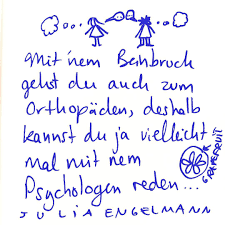 Mit nem Beinbruch
gehst du auch zum
Orthopäden, deshalb
kannst du ja vielleicht
mal mit nem
Psychologen reden...
GRAPEFRUIT
JULIA ENGELMANN